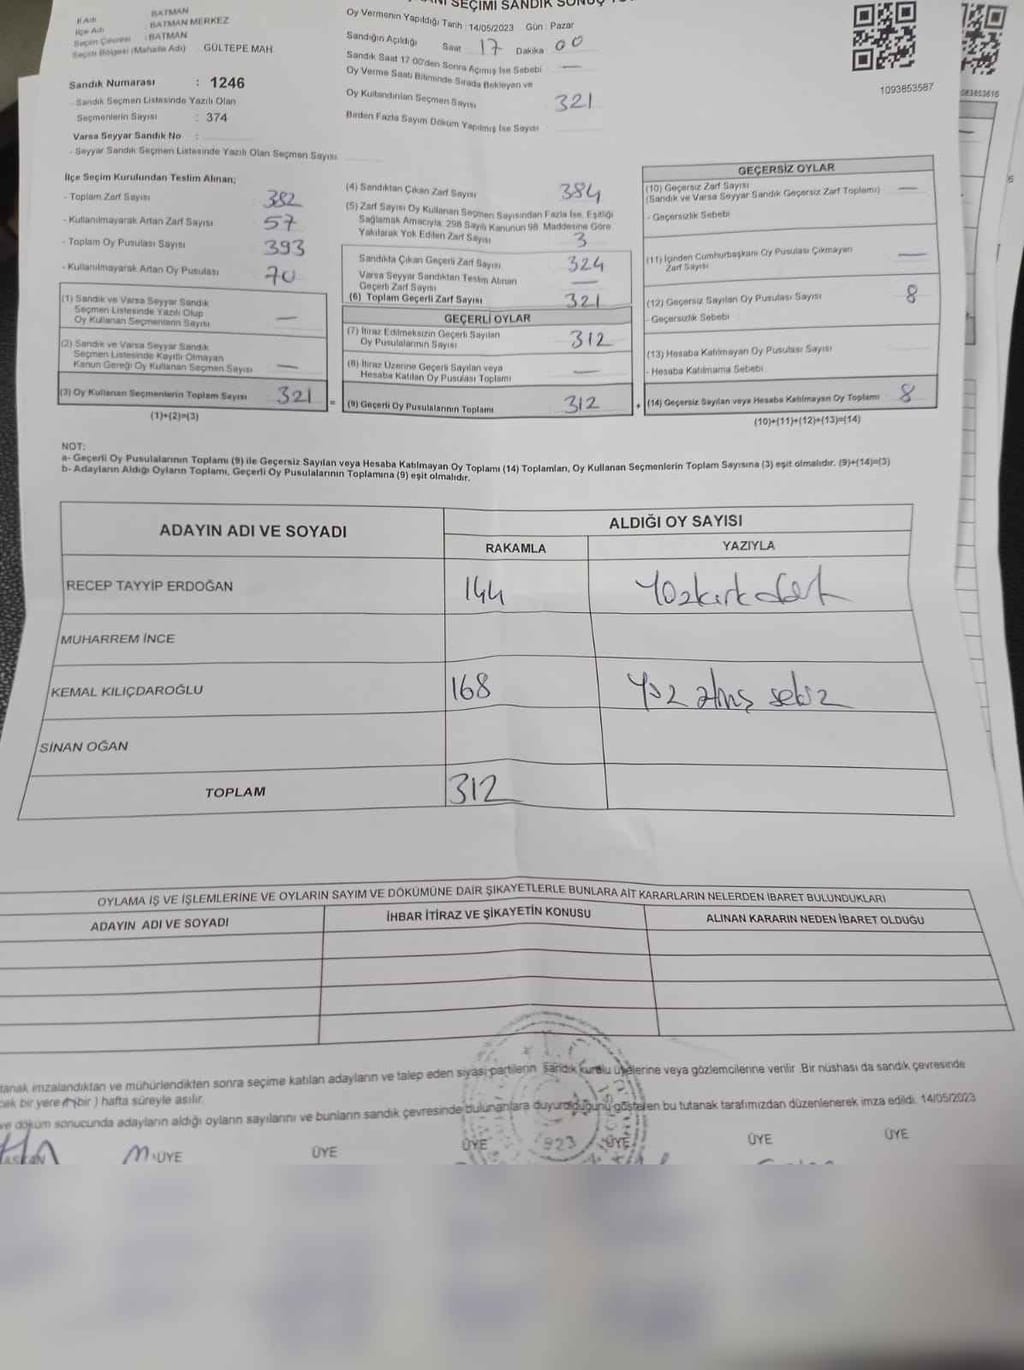 SEÇİMİ SANDIK SONUÇ
İl Adı BATMAN
İlçe Adı : BATMAN MERKEZ
Seçim Çevresi : BATMAN
Seçim Bölgesi (Mahalle Adı) GÜLTEPE MAH.
Sandık Numarası : 1246
- Sandık Seçmen Listesinde Yazılı Olan
Seçmenlerin Sayısı : 374
Varsa Seyyar Sandık No :
- Seyyar Sandık Seçmen Listesinde Yazılı Olan Seçmen Sayısı
Oy Vermenin Yapıldığı Tarih : 14/05/2023 Gün : Pazar
Sandığın Açıldığı Saat 17 Dakika 00
Sandık Saat 17:00'den Sonra Açımış İse Sebebi —
Oy Verme Saati Bitiminde Sırada Bekleyen ve
Oy Kullandırılan Seçmen Sayısı 321
Birden Fazla Sayım Döküm Yapılmış İse Sayısı
1093853587
İlçe Seçim Kurulundan Teslim Alınan;
- Toplam Zarf Sayısı 382
- Kullanılmayarak Artan Zarf Sayısı 57
- Toplam Oy Pusulası Sayısı 393
- Kullanılmayarak Artan Oy Pusulası 70
(1) Sandık ve Varsa Seyyar Sandık
Seçmen Listesinde Yazılı Olup
Oy Kullanan Seçmenlerin Sayısı —
(2) Sandık ve Varsa Seyyar Sandık
Seçmen Listesinde Kayıtlı Olmayan
Kanun Gereği Oy Kullanan Seçmen Sayısı —
(3) Oy Kullanan Seçmenlerin Toplam Sayısı 321
(1)+(2)=(3)
(4) Sandıktan Çıkan Zarf Sayısı 384
(5) Zarf Sayısı Oy Kullanan Seçmen Sayısından Fazla İse, Eşitliği
Sağlamak Amacıyla, 298 Sayılı Kanunun 98. Maddesine Göre
Yakılarak Yok Edilen Zarf Sayısı 3
Sandıkta Çıkan Geçerli Zarf Sayısı 324
Varsa Seyyar Sandıktan Teslim Alınan
Geçerli Zarf Sayısı —
(6) Toplam Geçerli Zarf Sayısı 321
GEÇERLİ OYLAR
(7) İtiraz Edilmeksizin Geçerli Sayılan
Oy Pusulalarının Sayısı 312
(8) İtiraz Üzerine Geçerli Sayılan veya
Hesaba Katılan Oy Pusulası Toplamı —
= (9) Geçerli Oy Pusulalarının Toplamı 312
GEÇERSİZ OYLAR
(10) Geçersiz Zarf Sayısı —
(Sandık ve Varsa Seyyar Sandık Geçersiz Zarf Toplamı)
- Geçersizlik Sebebi
(11) İçinden Cumhurbaşkanı Oy Pusulası Çıkmayan
Zarf Sayısı —
(12) Geçersiz Sayılan Oy Pusulası Sayısı 8
- Geçersizlik Sebebi
(13) Hesaba Katılmayan Oy Pusulası Sayısı
- Hesaba Katılmama Sebebi
+ (14) Geçersiz Sayılan veya Hesaba Katılmayan Oy Toplamı 8
(10)+(11)+(12)+(13)=(14)
NOT:
a- Geçerli Oy Pusulalarının Toplamı (9) ile Geçersiz Sayılan veya Hesaba Katılmayan Oy Toplamı (14) Toplamları, Oy Kullanan Seçmenlerin Toplam Sayısına (3) eşit olmalıdır. (9)+(14)=(3)
b- Adayların Aldığı Oyların Toplamı, Geçerli Oy Pusulalarının Toplamına (9) eşit olmalıdır.
ADAYIN ADI VE SOYADI ALDIĞI OY SAYISI
RAKAMLA YAZIYLA
RECEP TAYYİP ERDOĞAN 144 Yüzkırk dört
MUHARREM İNCE
KEMAL KILIÇDAROĞLU 168 Yüz atmış sekiz
SİNAN OĞAN
TOPLAM 312
OYLAMA İŞ VE İŞLEMLERİNE VE OYLARIN SAYIM VE DÖKÜMÜNE DAİR ŞİKAYETLERLE BUNLARA AİT KARARLARIN NELERDEN İBARET BULUNDUKLARI
ADAYIN ADI VE SOYADI İHBAR İTİRAZ VE ŞİKAYETİN KONUSU ALINAN KARARIN NEDEN İBARET OLDUĞU
tanak imzalandıktan ve mühürlendikten sonra seçime katılan adayların ve talep eden siyasi partilerin sandık kurulu üyelerine veya gözlemcilerine verilir. Bir nüshası da sandık çevresinde
cek bir yere (bir) hafta süreyle asılır.
ve döküm sonucunda adayların aldığı oyların sayılarını ve bunların sandık çevresinde bulunanlara duyurulduğunu gösteren bu tutanak tarafımızdan düzenlenerek imza edildi. 14/05/2023
BAŞKAN ÜYE ÜYE ÜYE ÜYE ÜYE ÜYE
923